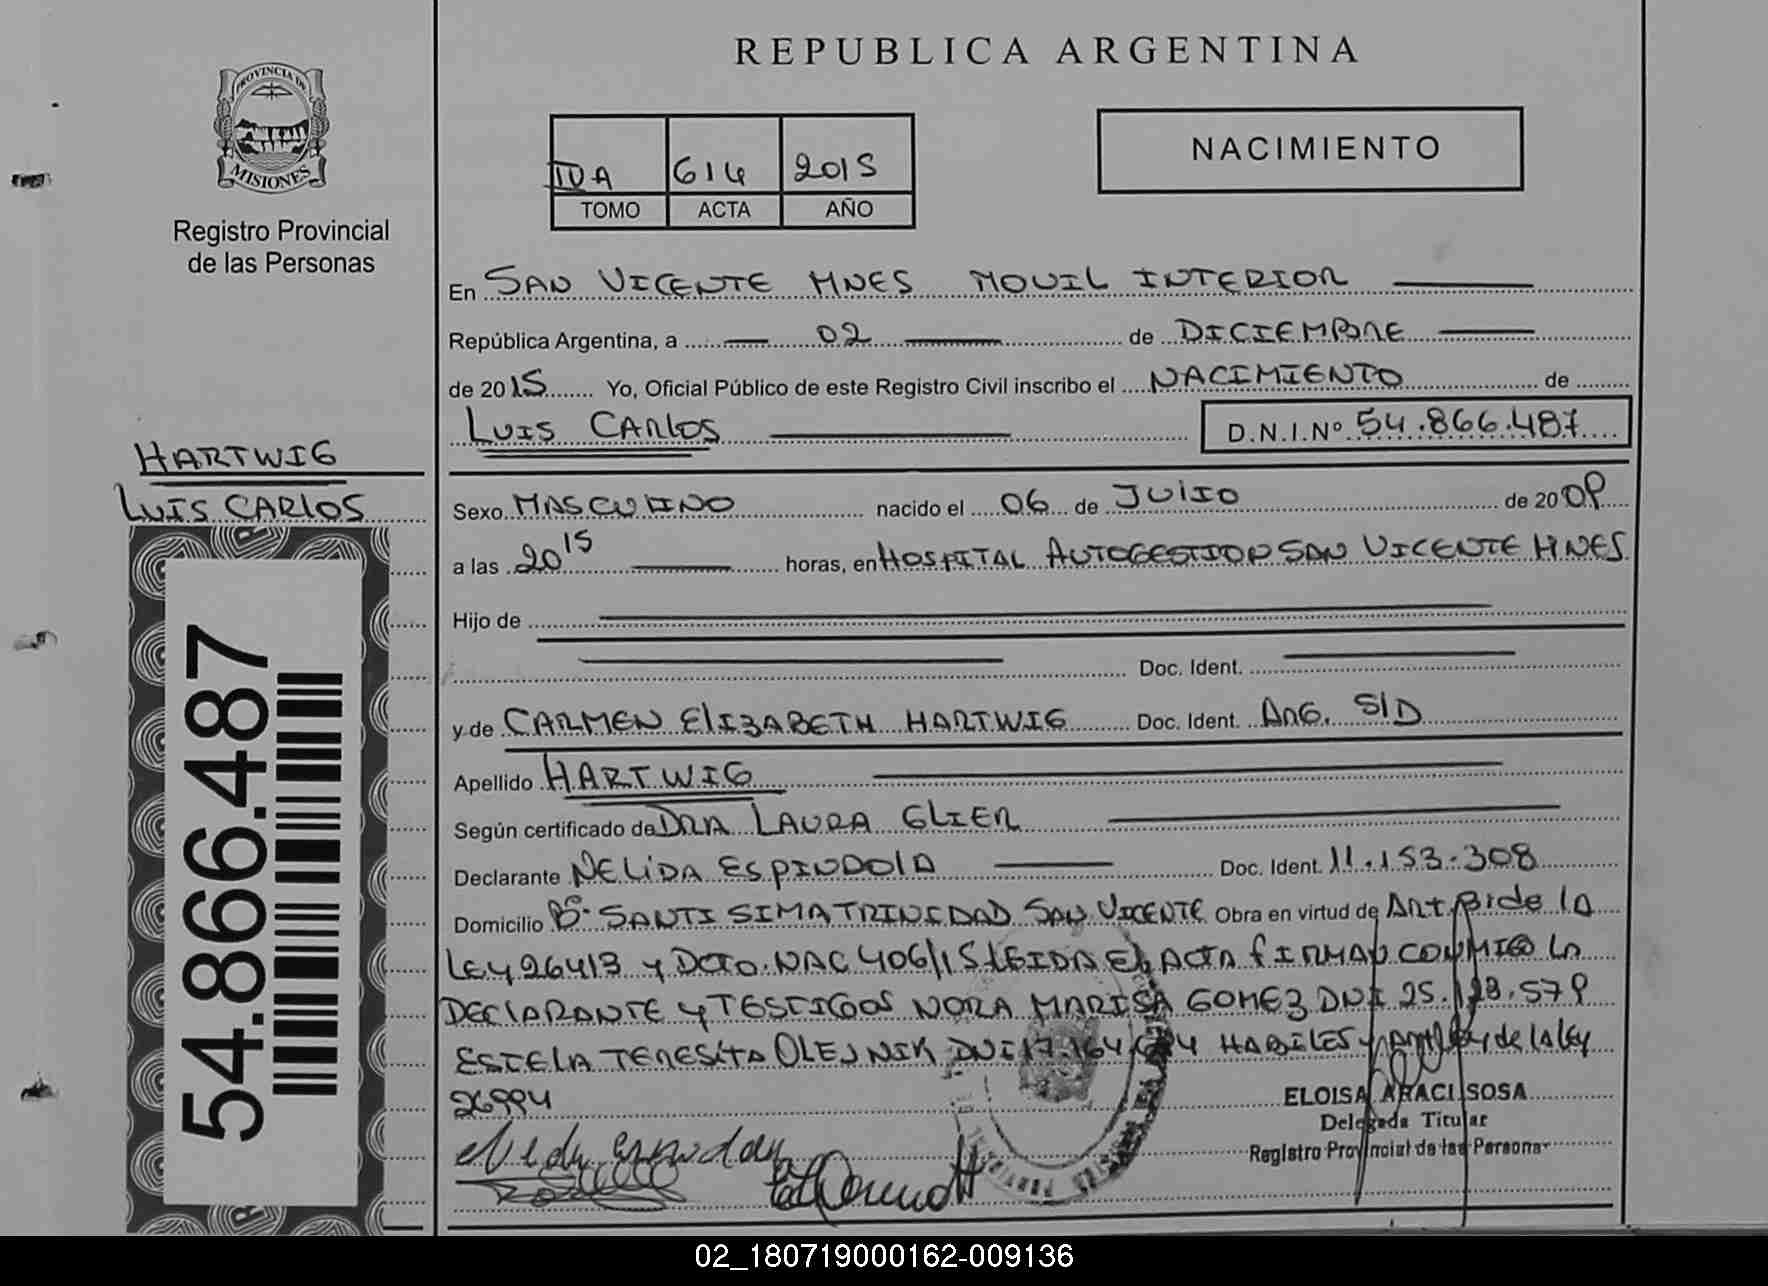 REPUBLICA ARGENTINA
PROVINCIA DE
MISIONES
Registro Provincial
de las Personas
614 2015
TOMO ACTA AÑO
NACIMIENTO
En SAN VICENTE MNES MOVIL INTERIOR
República Argentina, a 02 de DICIEMBRE
de 2015 Yo, Oficial Público de este Registro Civil inscribo el NACIMIENTO de
LUIS CARLOS D.N.I.Nº 54.866.487
HARTWIG
LUIS CARLOS
54.866.487
Sexo MASCULINO nacido el 06 de JULIO de 2009
a las 20 15 horas, en HOSPITAL AUTOGESTION SAN VICENTE MNES
Hijo de
Doc. Ident.
y de CARMEN ELIZABETH HARTWIG Doc. Ident. ARG. S/D
Apellido HARTWIG
Según certificado de DRA LAURA GLIER
Declarante NELIDA ESPINDOLA Doc. Ident. 11.153.308
Domicilio Bº SANTISIMA TRINIDAD SAN VICENTE Obra en virtud de ART. de LA
LEY 26413 y DCTO. NAC 406/15 LEIDA EL ACTA FIRMAN CONMIGO LA
DECLARANTE y TESTIGOS NORA MARISA GOMEZ DNI 25.123.579
ESTELA TERESITA OLEJNIK DNI 17.164 HABILES de la Ley
26994
ELOISA ARACI SOSA
Delegada Titular
Registro Provincial de las Personas
02_180719000162-009136